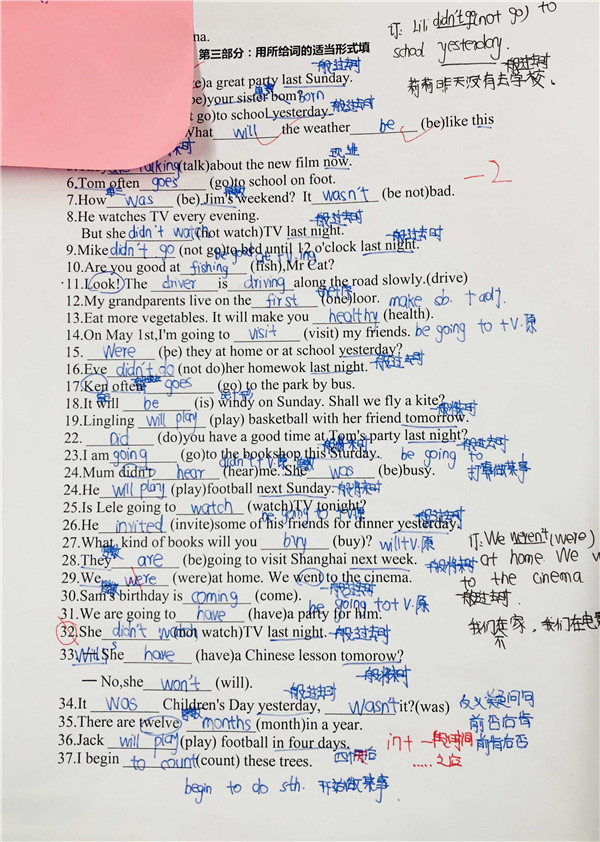 na.
第三部分：用所给词的适当形式填
订: Lili didn't go(not go) to
school yesterday.
一般过去时
莉莉昨天没有去学校。
一般过去时
e)a great party last Sunday.
be)your sister born? born
一般过去时
t go)to school yesterday.
What will the weather be (be)like this
talking(talk)about the new film now.
-2
6.Tom often goes (go)to school on foot.
7.How was (be) Jim's weekend? It wasn't (be not)bad.
8.He watches TV every evening.
一般过去时
But she didn't watch (not watch)TV last night.
一般过去时
9.Mike didn't go (not go)to bed until 12 o'clock last night.
be good at +V.ing
10.Are you good at fishing (fish),Mr Cat?
11.Look!The driver is driving along the road slowly.(drive)
12.My grandparents live on the first (one)loor. make sb. + adj.
13.Eat more vegetables. It will make you healthy (health).
14.On May 1st,I'm going to visit (visit) my friends. be going to +V.原
15. Were (be) they at home or at school yesterday?
16.Eve didn't do (not do)her homewok last night. 一般过去时
17.Ken often goes (go) to the park by bus.
18.It will be (is) windy on Sunday. Shall we fly a kite?
一般将来时
19.Lingling will play (play) basketball with her friend tomorrow.
22. Did (do)you have a good time at Tom's party last night?
一般过去时
23.I am going (go)to the bookshop this Sturday. be going to
打算做某事
didn't +V.原
24.Mum didn't hear (hear)me. She was (be)busy.
24.He will play (play)football next Sunday. 一般将来时
25.Is Lele going to watch (watch)TV tonight?
be going to +V.原
一般过去时
26.He invited (invite)some of his friends for dinner yesterday.
27.What kind of books will you buy (buy)? will+V.原
订: We weren't(were)
at home. We w
to the cinema
一般过去时.
我们不在家，我们在电影
28.They are (be)going to visit Shanghai next week. 一般将来时
29.We were (were)at home. We went to the cinema.
一般过去时
30.Sam's birthday is coming (come).
be going to+V.原
31.We are going to have (have)a party for him.
32.She didn't watch (not watch)TV last night. 一般过去时
33. Will She have (have)a Chinese lesson tomorow?
一般将来时
— No,she won't (will).
一般过去时
34.It was Children's Day yesterday, wasn't it?(was) 反义疑问句
前否后肯
前肯后否
35.There are twelve months (month)in a year.
36.Jack will play (play) football in four days. in+一段时间
四天后 ……之后
37.I begin to count (count) these trees.
begin to do sth. 开始做某事